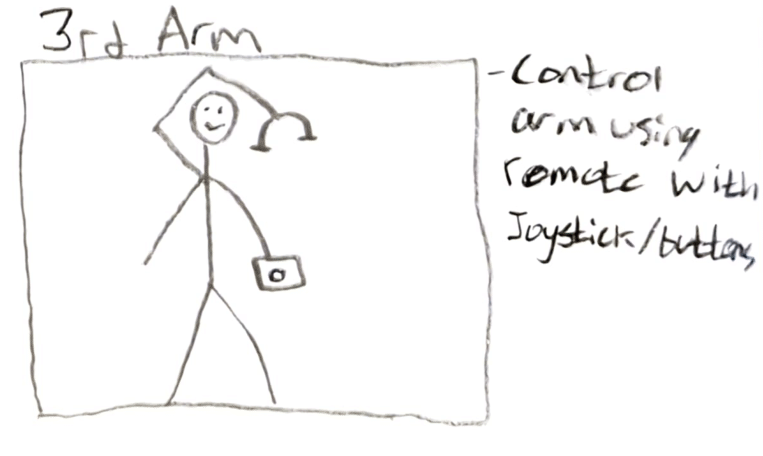 3rd Arm
- Control
arm using
remote with
Joystick/buttons